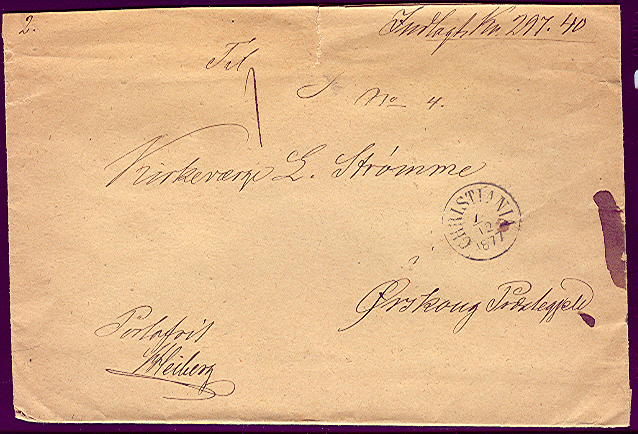 2.
Indlagt Kr. 297. 40
Til
No 4.
Kirkeværge L. Strømme
CHRISTIANIA
1
12
1877
Ørskoug
Portofrit
Heiberg